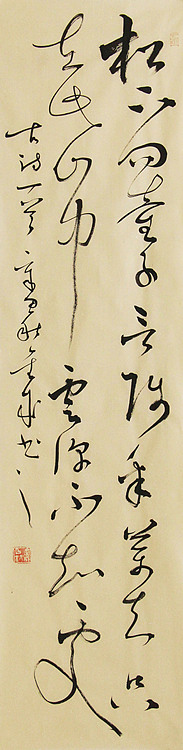 松下問童子言師采藥去只
在此山中雲深不知處
古詩一首